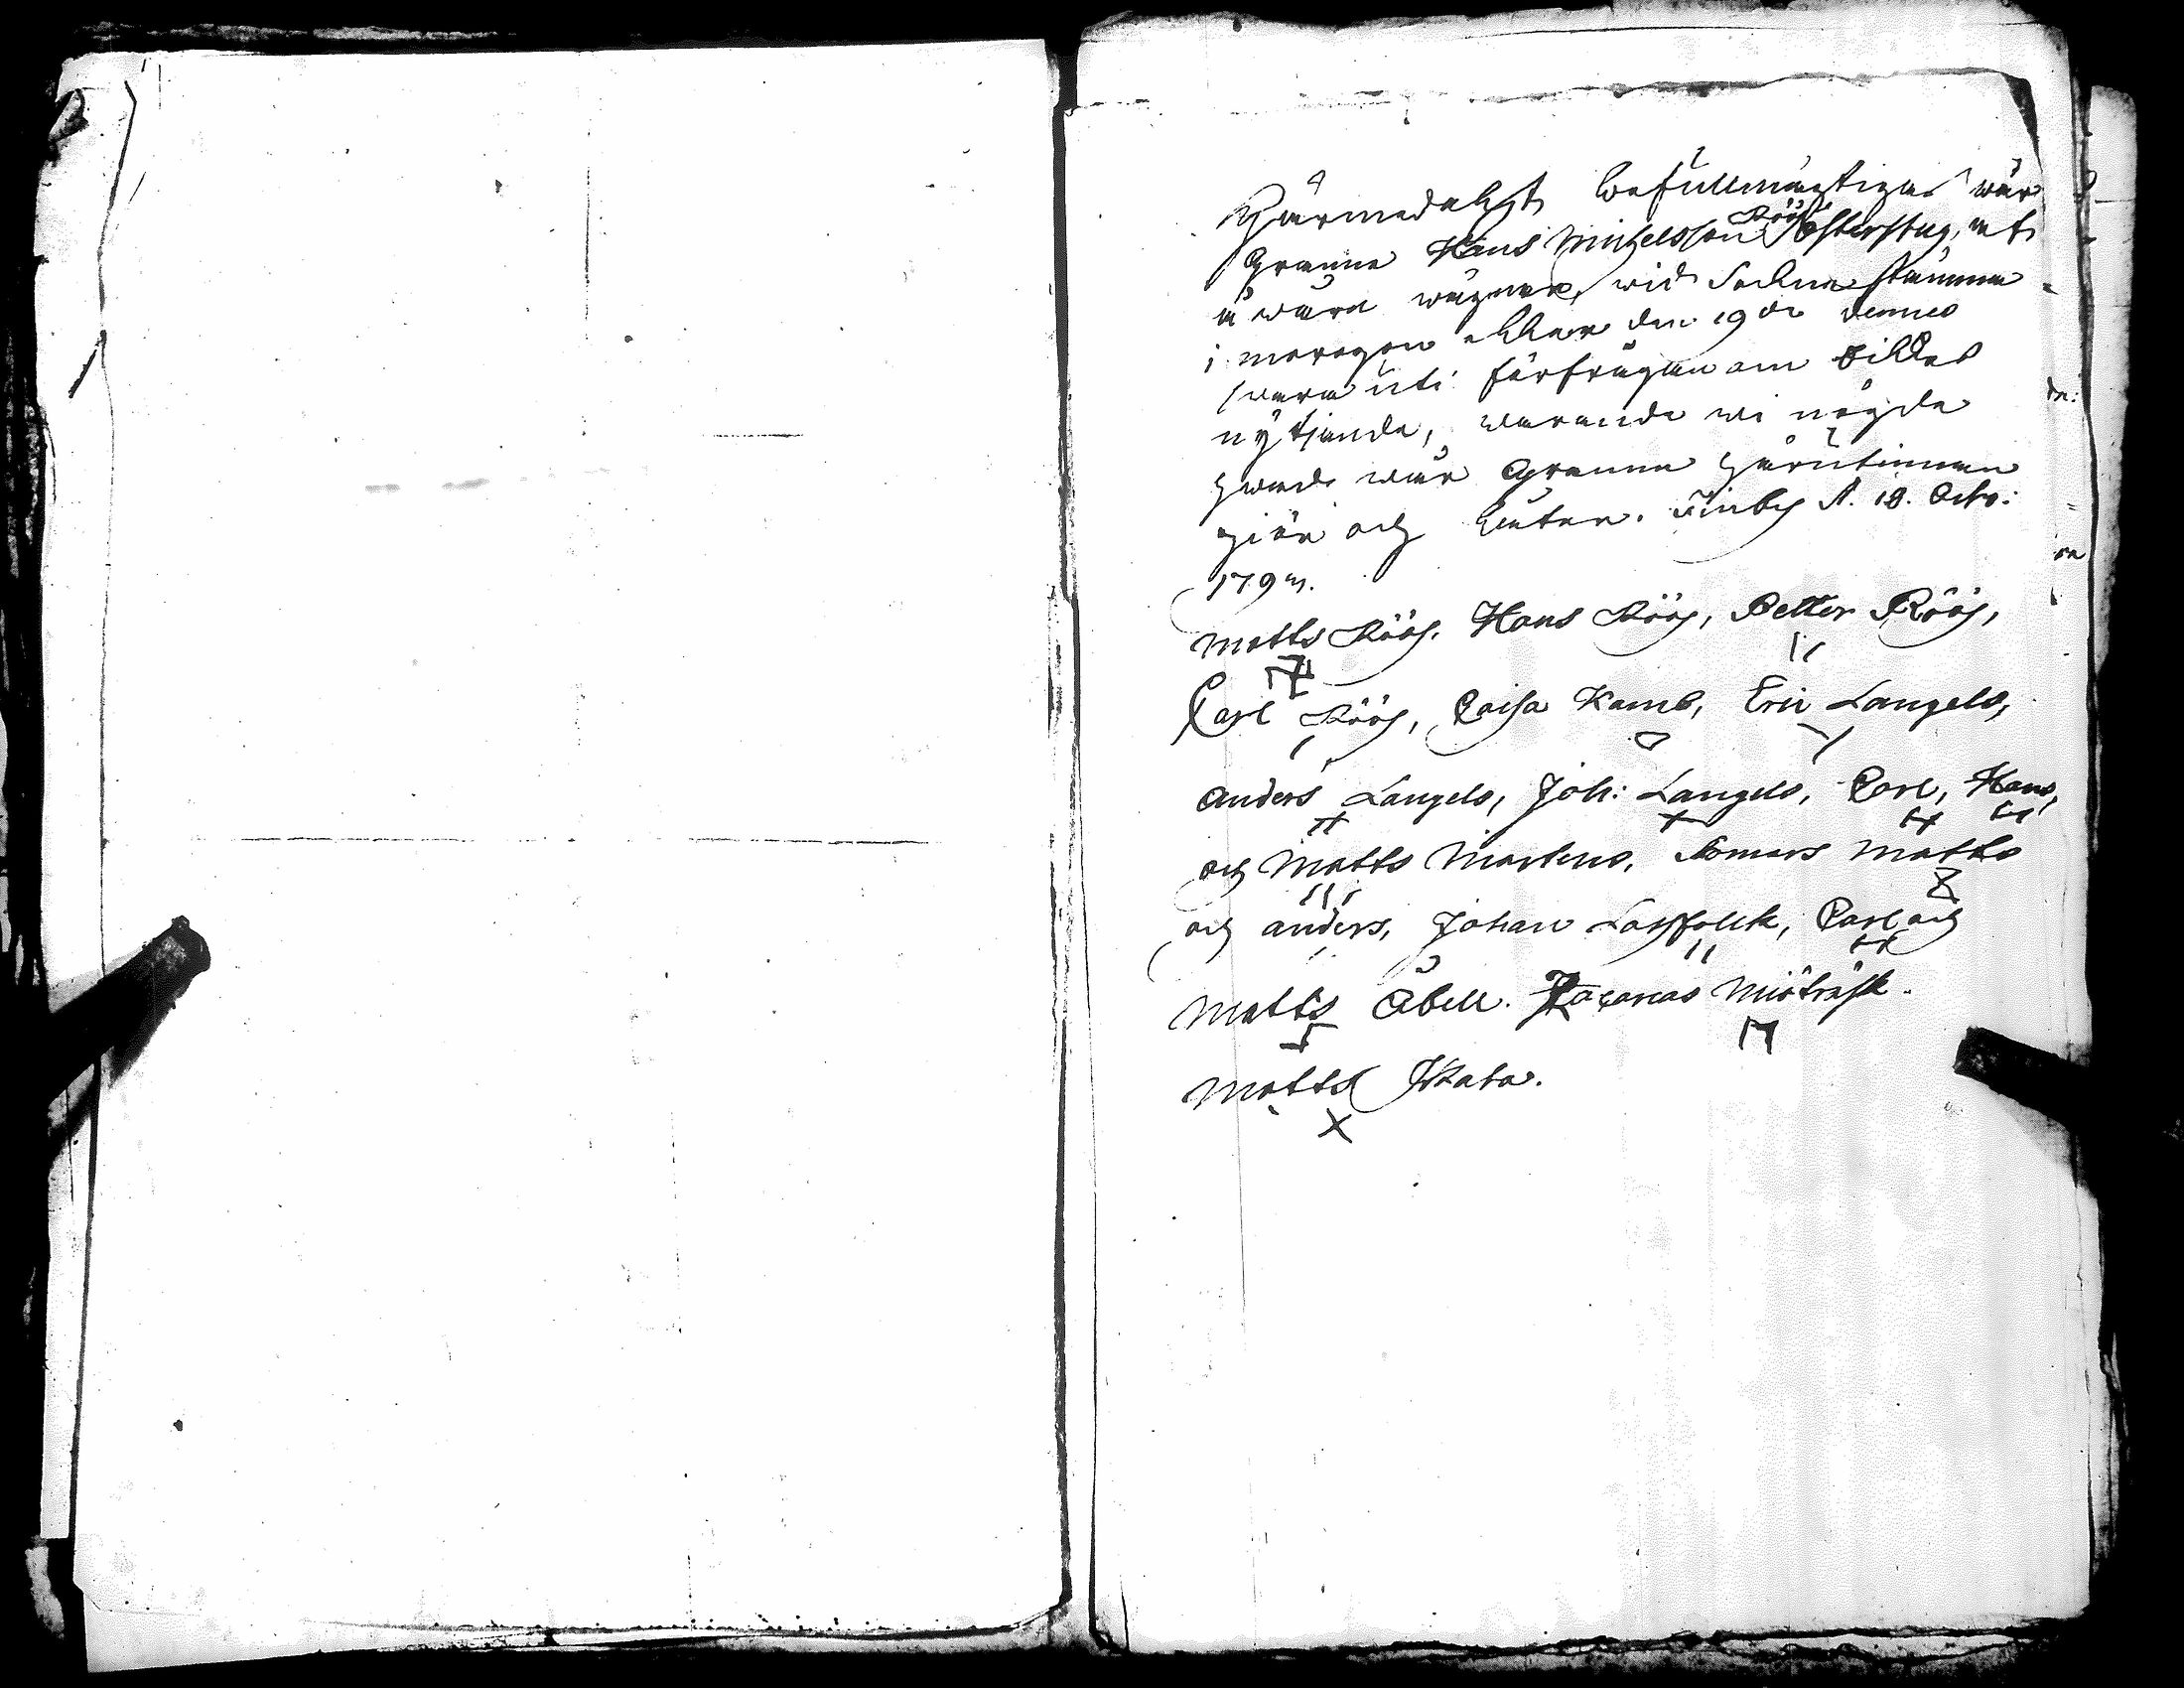 Härmedelst befullmägtigas wår
Röös
granne Hans Michelsson Österstug, at
å wåra wägnar, wid Sockne stämma
i morgon eller den 19de dennes
swara uti förfrågan om
nytjande, warande wi nögde
hwad wår granne härutinnan
giör och låter. Finby d. 18. Octo:
179
Matts Röös, Hans Röös, Petter Röös,
Carl Röös, Caisa Kamb, Eric Langels,
Anders Langels, Joh: Langels, Carl, Hans,
och Matts Martens, Matts
och Anders, Johan Lassfolck, Carl och
Matts Åbell. Zacarias Miöträsk.
Matts